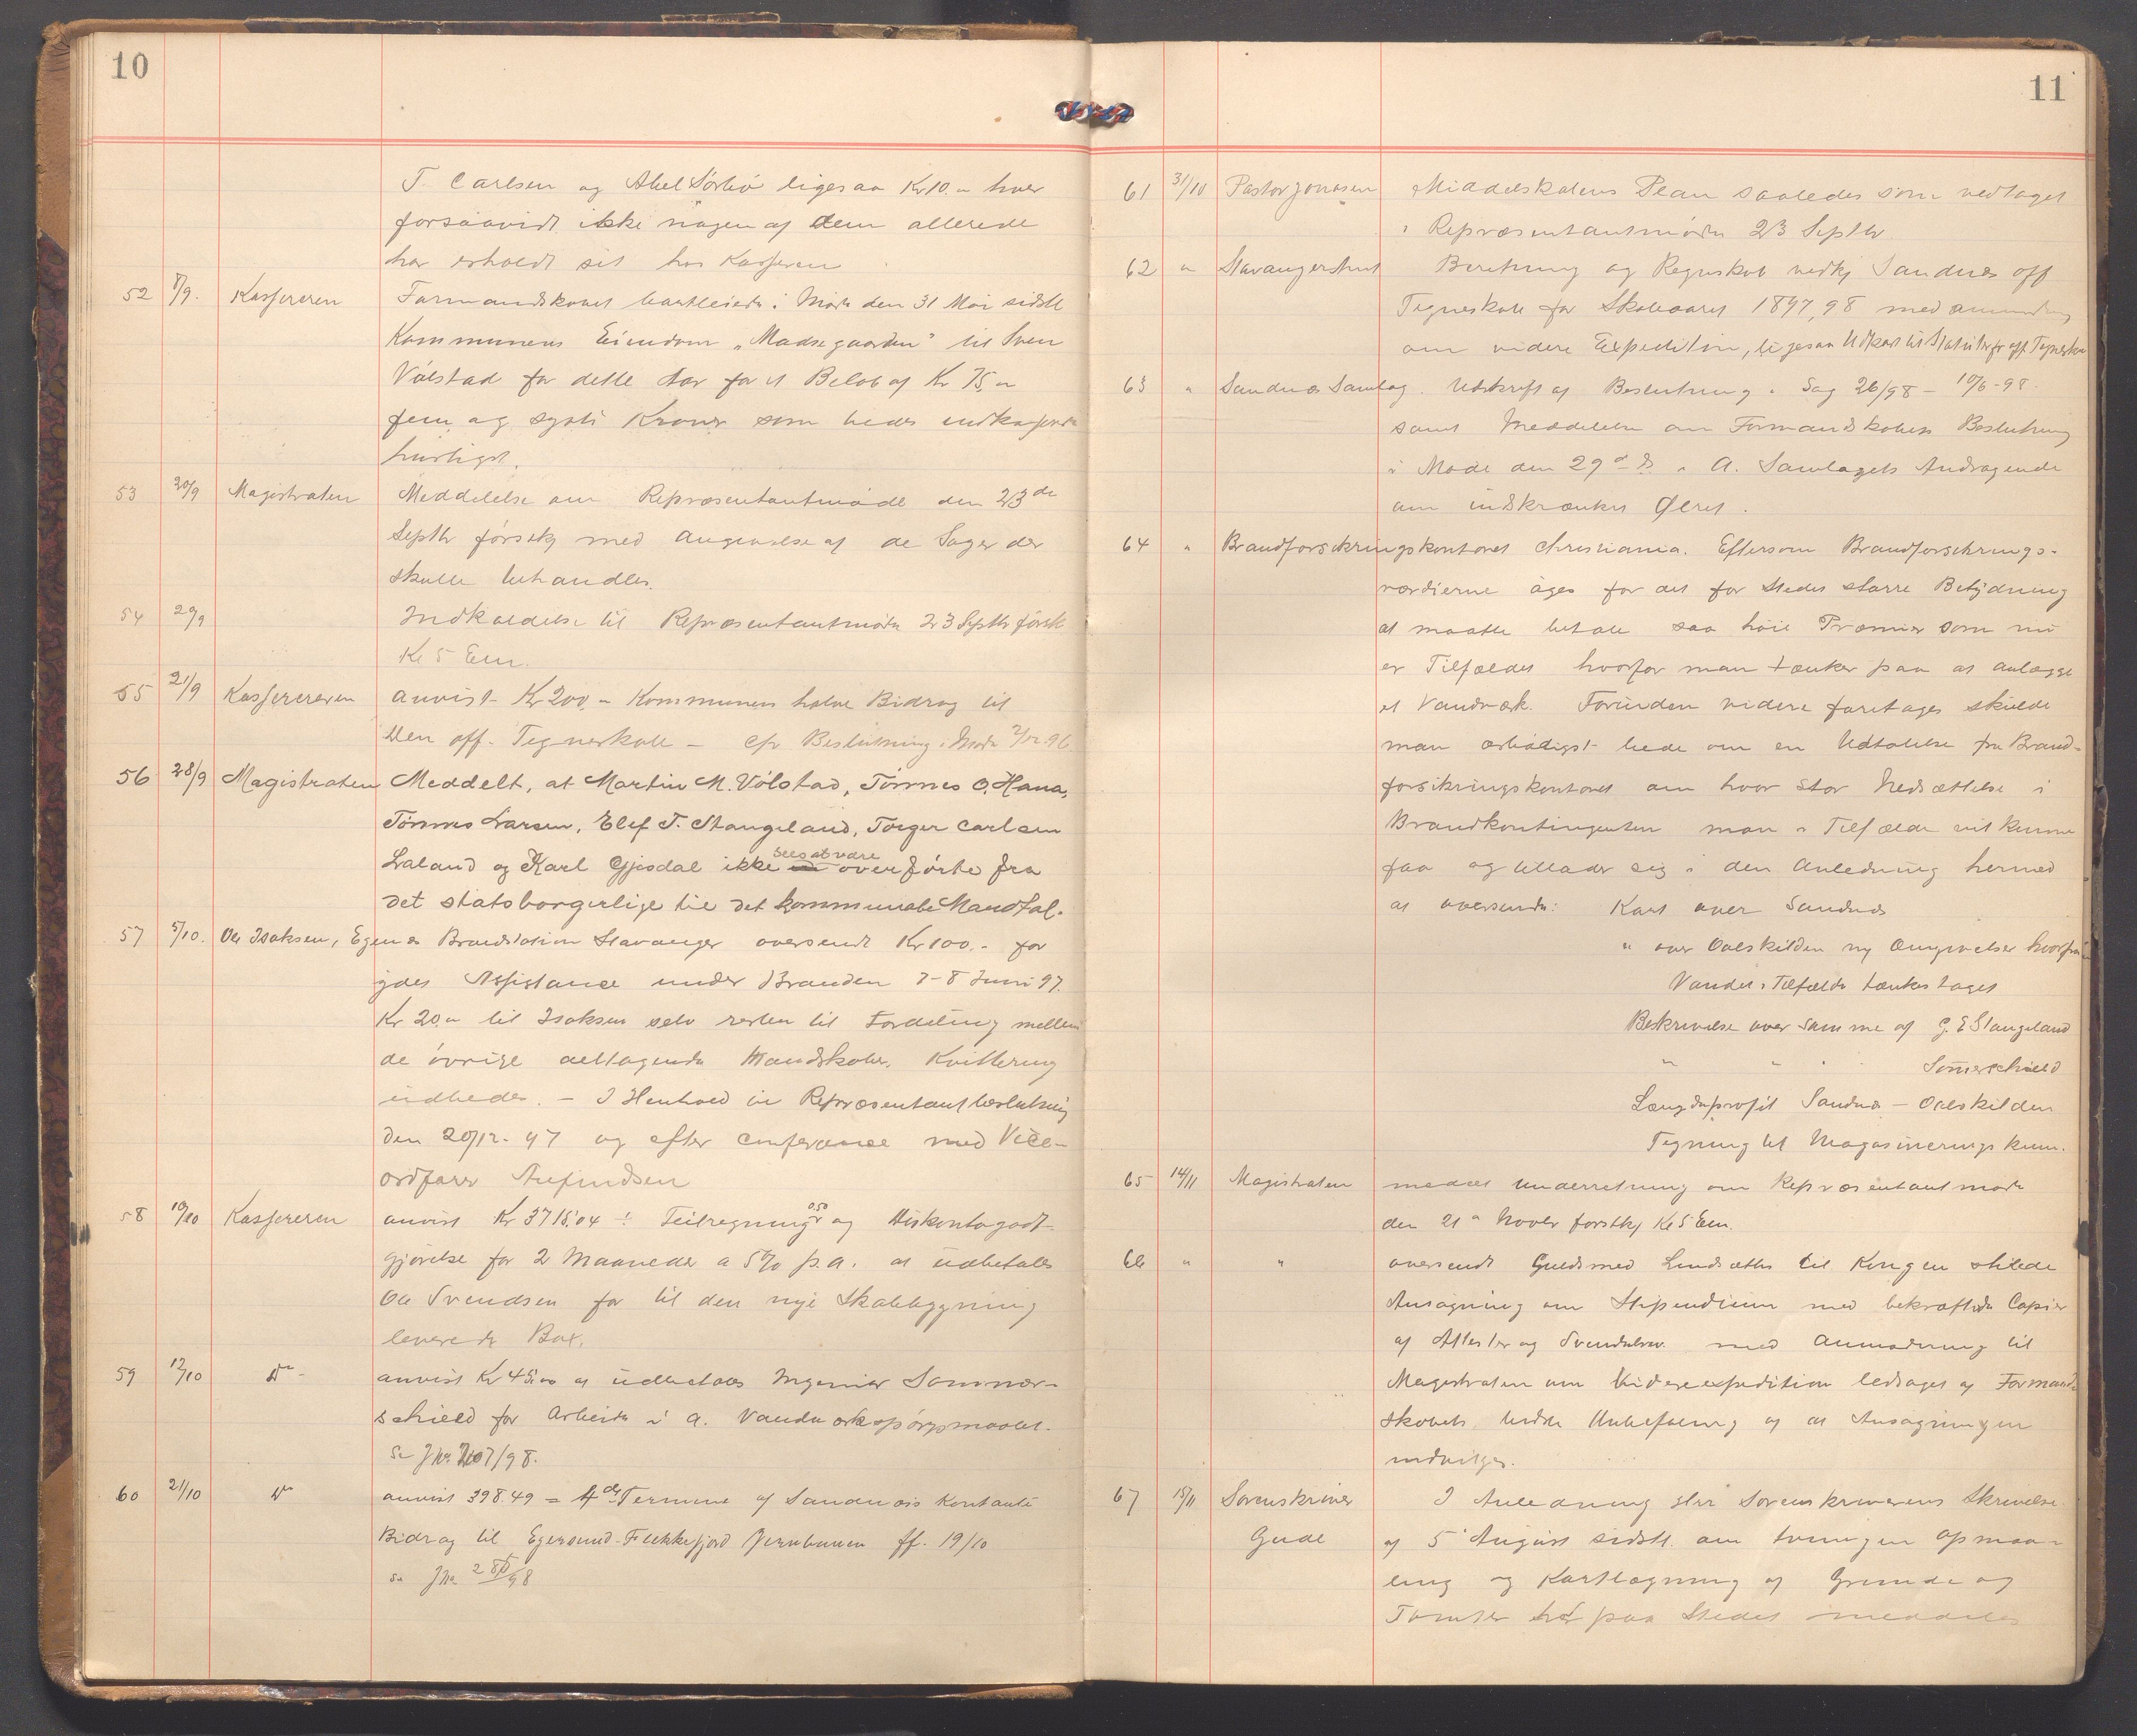 10
T. Carlsen og Abel Sörbö ligesaa Kr 10.- hver
forsaavidt ikke nogen af dem allerede
har erholdt sit hos Kassereren
52 8/9. Kassereren Formandskabet bortleiede i Möde den 31 Mai sidstl
Kommunens Eiendom "Madsegaarden" til Sven
Völstad for dette Aar for et Beløb af Kr 75,-
fem og sytti Kroner som bedes indkasseret
hurtigst.
53 20/9 Magistraten Meddelelse om Repræsentantmöde den 23de
Septbr förstkj med Angivelse af de Sager der
skulle behandles.
54 20/9 Indkaldelse til Repræsentantmöde 23 Septbr förstk
Kl 5 Em.
55 21/9 Kassereren anvist Kr 200.- Kommunens halve Bidrag til
Den off. Tegneskole - cfr Beslutning i Möde 2/12 96
56 28/9 Magistraten Meddelt, at Martin M. Völstad, Tönnes O. Hana,
Tönnes Larsen, Elef T. Stangeland, Torger Carlsen
Laland og Karl Gjesdal ikke sees at være overförte fra
det statsborgerlige til det kommunale Mandtal.
57 5/10. Ole Isaksen, Egenes Brandstation Stavanger oversendt Kr 100.- for
ydet Assistance under Branden 7-8 Juni 97.
Kr 20.- til Isaksen selv resten til Fordeling mellem
de övrige deltagende Mandskaber. Kvittering
udbedes. - I Henhold til Repræsentantbeslutning
den 20/12-97 og efter conference med Vice-
ordförer Aufindsen
58 10/10 Kassereren anvist Kr 3715.04 ÷ Feilregning 0,50 og Diskontogodt-
gjörelse for 2 Maaneder a 5% p.a. at udbetales
Ole Svendsen for til den nye Skolebygning
leverede Box.
59 12/10 Do - anvist Kr 45,00 at udbetales Ingeniör Sommer-
schield for Arbeide i A. Vandværksspörgsmaalet.
Se Jno 207/98.
60 21/10 Do anvist 398.49 = 4de Termine af Sandnæs kontante
Bidrag til Egersund-Flekkefjord Jernbanen ff. 19/10
se Jno 280/98
11
61 31/10 Pastor Jonasen Middelskolens Plan saaledes som vedtaget
i Repræsentantmöde 23 Septbr.
62 " Stavanger Amt Beretning og Regnskab vedkj Sandnæs off
Tegneskole for Skoleaaret 1897,98 med anmodning
om videre Expedition, ligesaa Udkast til Statuter for off. Tegneskole
63 " Sandnæs Samlag. Udskrift af Beslutning i Sag 26/98 - 10/6-98.
samt Meddelelse om Formandskabets Beslutning
i Möde den 29de ds i A. Samlagets Andragende
om indskrænket Ølret.
64 " Brandforsikringskontoret Christiania. Eftersom Brandforsikrings-
værdierne öges for det for Stedet större Betydning
at maatte betale saa höie Præmier som nu
er Tilfældet hvorfor man tænker paa at anlægge
et Vandværk. Forinden videre foretages skulde
man ærbödigst bede om en Udtalelse fra Brand-
forsikringskontoret om hvor stor Nedsættelse i
Brandkontingenten man i Tilfælde vil kunne
faa og tillader sig i den Anledning hermed
at oversende: Kart over Sandnæs
" over Oalskilden og Omgivelser hvorfra
Vandet i Tilfælde tænkes taget
Beskrivelse over samme af G. E Stangeland
" " " Somerschield
Længdeprofil Sandnæs - Oalskilden
Tegning til Magasineringskum.
65 14/11 Magistraten meddelt Underretning om Repræsentantmöde
den 21de Novbr förstkj Kl 5 Em.
66 " " oversendt Guldsmed Lindsæths til Kongen stilede
Ansögning om Stipendium med bekræftede Copier
af Attester og Svendebrev med Anmodning til
Magistraten om Videreexpedition ledsaget af Formand-
skabets bedste Anbefaling af at Ansögningen
indvilges.
67 15/11 Sorenskriver I Anledning Hrr Sorenskriverens Skrivelse
Gude af 5 August sidstl. om tvungen Opmaa-
ling og Kartlægning af Grunde og
Tomter her paa Stedet meddeles